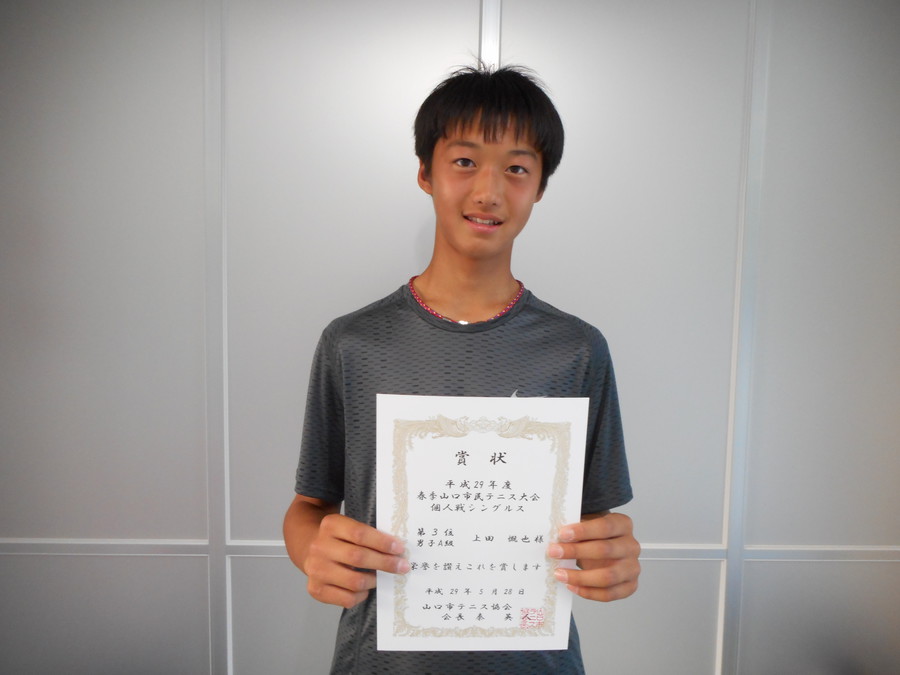 賞状
平成29年度
春季山口市民テニス大会
個人戦シングルス
第3位
男子A級 上田 也様
栄誉を讃えこれを賞します
平成29年5月28日
山口市テニス協会
会長 泰英